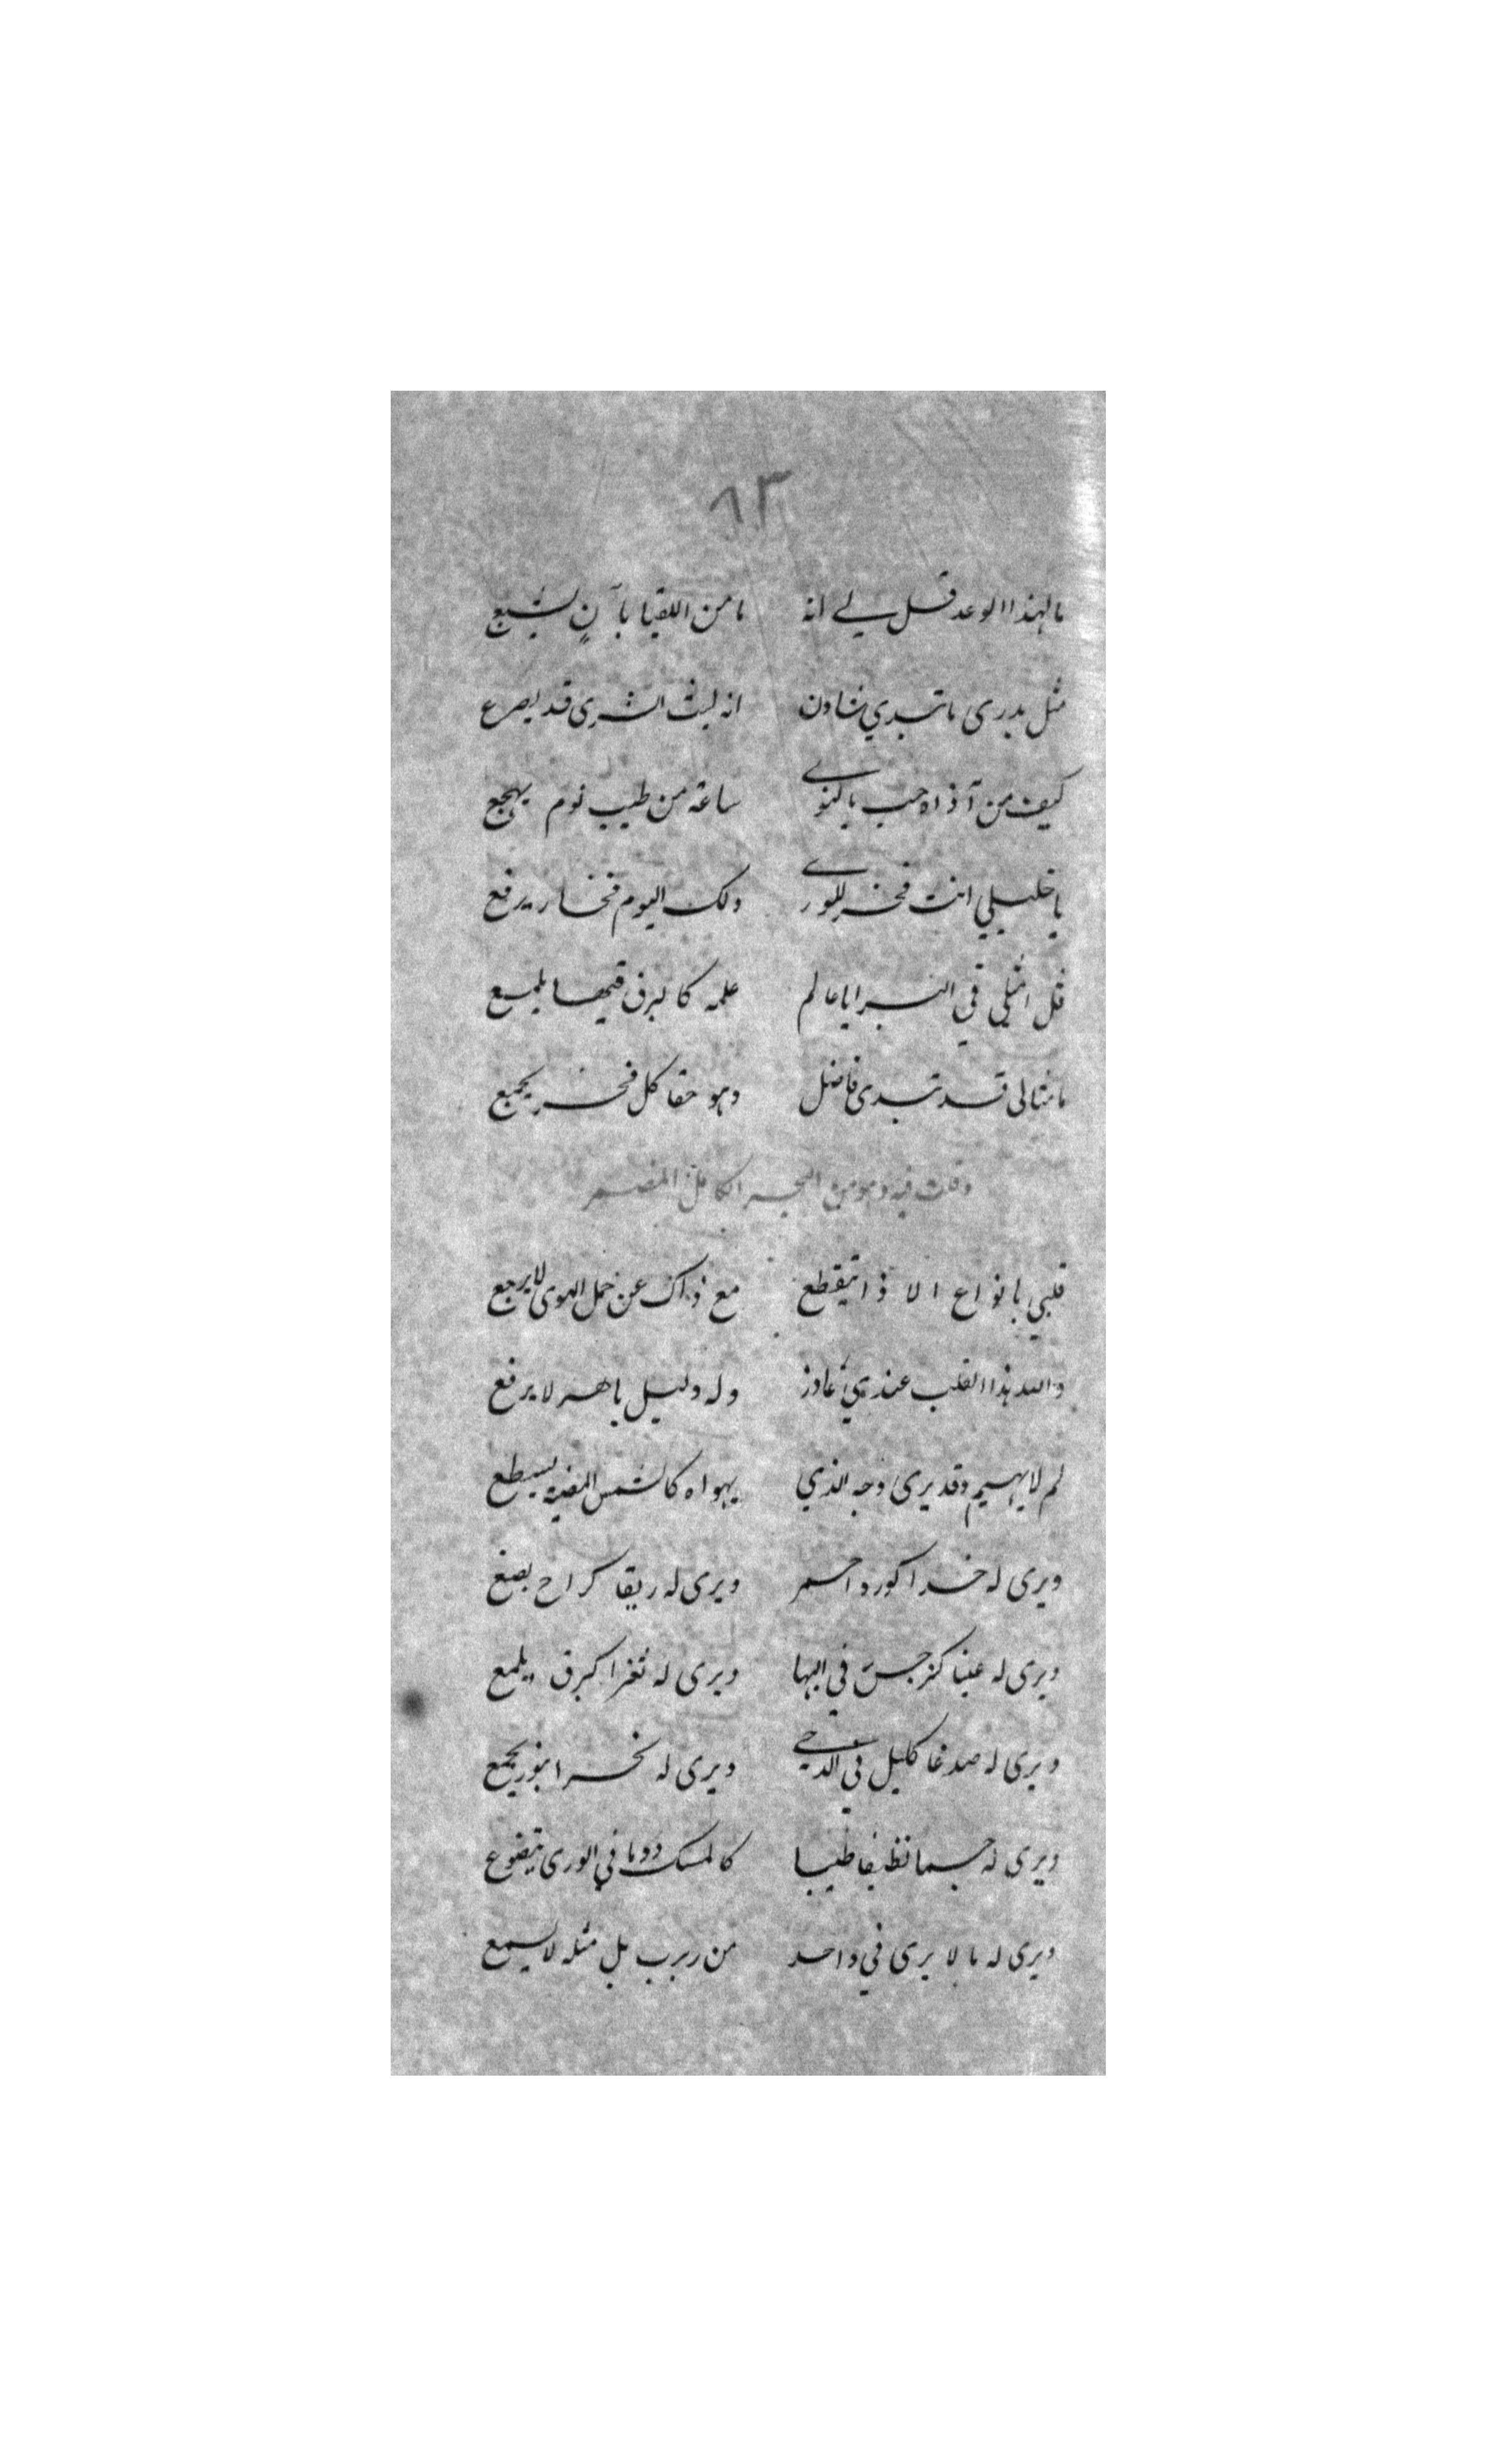 ٨٣
ما لهذا الوعد قل لي انه ما من اللقيا بآنٍ يشبع
مثل بدري ما تبدي شادن انه ليث الشرى قد يصرع
كيف من آذاه حب بالنوى ساعة من طيب نوم يهجع
يا خليلي انت فخر للورى ولك اليوم فخار يرفع
قل امثلي في البرايا عالم علمه كالبرق فيها يلمع
ما مثالي قد تبدى فاضل وهو حقا كل فخر يجمع
وقلت فيه وهو من البحر الكامل المضمر
قلبي بانواع الاذا يتقطع مع ذاك عن حمل الهوى لا يرجع
والله هذا القلب عندي عاذر وله دليل باهر لا يرفع
لم لا يهيم وقد يرى وجه الذي يهواه كالشمس المضيه يسطع
ويرى له خدا كورد احمر ويرى له ريقا كراح
ويرى له عينا كنرجس في البها ويرى له ثغرا كبرق يلمع
ويرى له صدغا كليل في الدجى ويرى له نحرا بنور يجمع
ويرى له جسما نظيفا طيبا كالمسك دوما في الورى يتضوع
ويرى له ما لا يرى في واحد من ربرب بل مثله لا يسمع